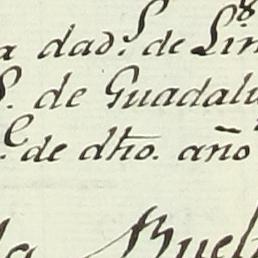 a dad.s de Lin
S. de Guadalu
e de dho. año
la Buel